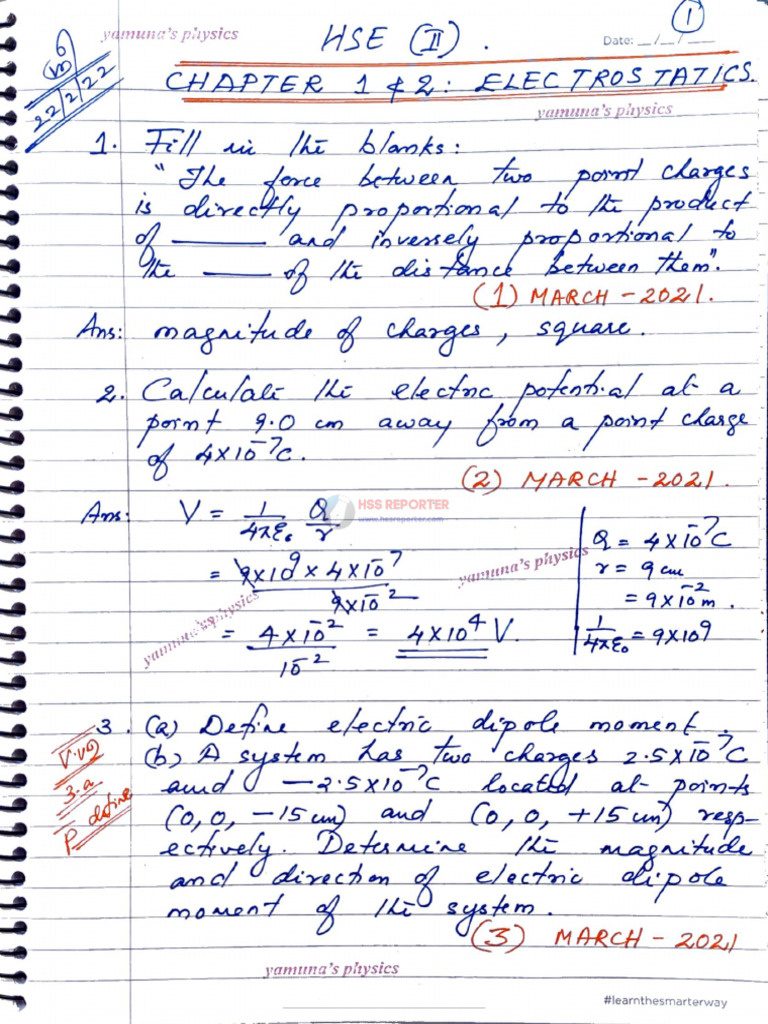 yamuna's physics
HSE (II).
Date: __/__/__
1
22/2/22
CHAPTER 1 & 2: ELECTROSTATICS.
yamuna's physics
1. Fill in the blanks:
"The force between two point charges
is directly proportional to the product
of ______ and inversely proportional to
the ______ of the distance between them".
(1) MARCH - 2021.
Ans: magnitude of charges, square.
2. Calculate the electric potential at a
point 9.0 cm away from a point charge
of 4×10⁻⁷C.
(2) MARCH - 2021.
HSS REPORTER
www.hssreporter.com
Ans: V = 1/4πε₀ Q/r
= 9×10⁹ × 4×10⁻⁷ / 9×10⁻²
= 4×10⁻² / 10⁻² = 4×10⁴ V.
Q = 4×10⁻⁷C
r = 9 cm
= 9×10⁻² m.
1/4πε₀ = 9×10⁹
yamuna's physics
yamuna's physics
3. (a) Define electric dipole moment.
(b) A system has two charges 2.5×10⁻⁷C
and -2.5×10⁻⁷C located at points
(0, 0, -15 cm) and (0, 0, +15 cm) resp-
ectively. Determine the magnitude
and direction of electric dipole
moment of the system.
(3) MARCH - 2021
3.a
P define
yamuna's physics
#learnthesmarterway